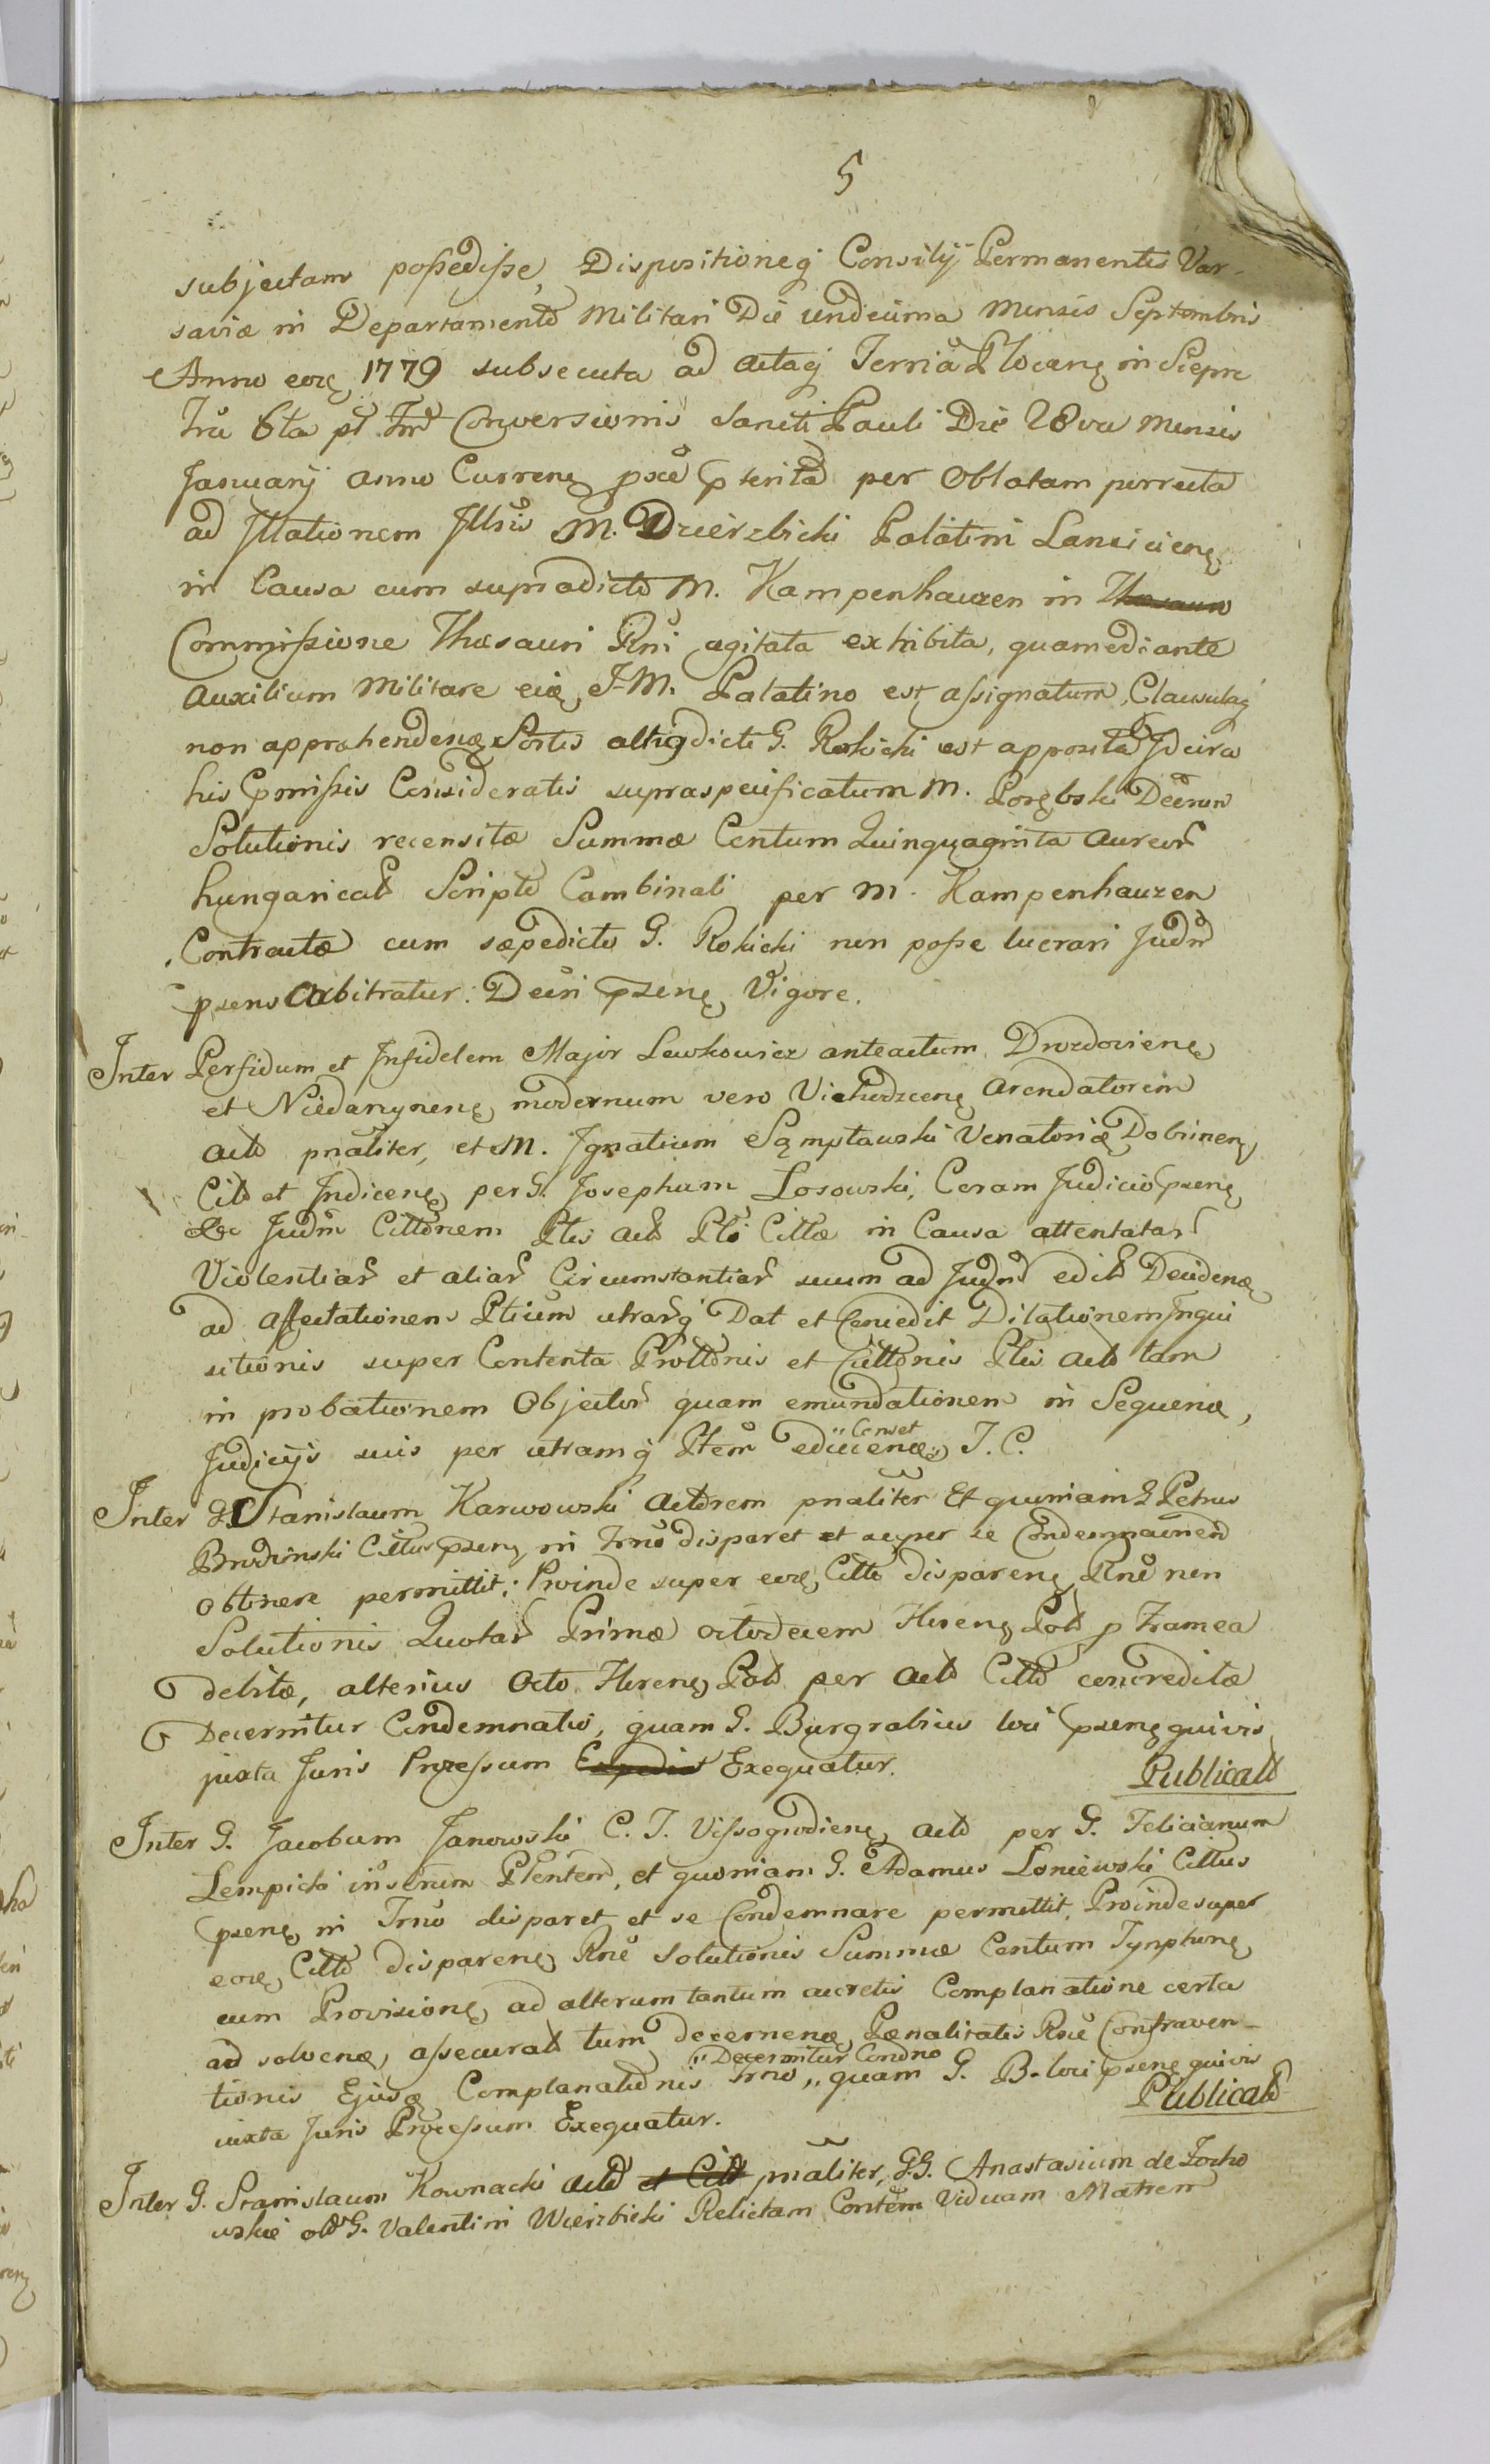 5
subjectam possedisse, Dispositioneq Consilij Permanentis Var-
saviæ in Departamento Militari Die undecima Mensis Septembris
Anno eoę 1779 subsecuta ad Actaq Terria Plocenę in Siepre
Fria 6ta pt Fm Conversionis Sancti Pauli Die 28va Mensis
Januarij anno Currenę pxe pterito per Oblatam porrecta
ad Jllationem Jllris M. Dzierzbicki Palatini Lancicienę
in Causa cum supradicto M. Kampenhauzen in Thesauro
Commissione Thesauri Rni agitata exhibita, qua mediante
Auxilium Militare eię J.M. Palatino est assignatum, Clausulaq
non apprehendenę Sortis altiqdicti G. Rokicki est apposita Jdcirco
his pmissis Consideratis supraspecificatum M. Porębski Decrum
Solutionis recensitæ Summæ Centum Quinquaginta Aureor
hungarical Scripto Cambinali per M. Kampenhauzen
Contractæ cum sæpedicto G. Rokicki non posse lucrari Judm
psens Arbitratur. Decri psenę Vigore.
Inter Perfidum et Jnfidelem Major Lewkowicz anteactum Drozdovienę
et Niedanynenę modernum vero Vichodzcenę Arendatorem
Acto pnaliter, et M. Jgnatium Sąmptawski Venatoriæ Dobrinenę
Cito et Jndicenę per G. Josephum Losowski, Coram Judicio psenę
Judm Cittonem Ptis Act Pto Cittæ in Causa attentatar
Violentiar et aliar Circumstantiar suum ad Judm edito Decidenę
ad Affectationem Ptium utrarq Dat et Concedit Dilationem Jnqui
sitionis super Contenta Prottonis et Cittonis Ptis Act tam
in probationem Objector quam emundationem in Sequenę,
Judicijs suis per utramq Ptem educenę "Censet" J. C.
Inter G. Stanislaum Karwowski Actorem pnaliter Et quoniam G Petrus
Brodzinski Cittus psenę in Trno disparet et super se Condemnaonem
obtinere permittit; Proinde super eoę Citto disparenę Rne non
Solutionis Quotar Primæ octodecem Florenę Pol p Framea
debitæ, alterius Octo Florenę Pol per Act Citto concreditæ
Decernitur Condemnatio, quam G. Burgrabius loci psenę quivis
juxta Juris Processum Expedit Exequatur.
Publicat
Inter G. Jacobum Janowski C. T. Vissogrodienę Act per G. Felicianum
Lempicki inserum Ptentem, et quoniam G. Adamus Loniewski Cittus
psenę in Trno disparet et se Condemnare permittit, Proinde super
eoę Citto disparenę Rne Solutionis Summæ Centum Tynphonę
cum Provisione, ad alterum tantum accretis Complanatione certa
ad solvenę, assecurat tum decernenę Pœnalitatis Rne Contraven-
tionis Ejusę Complanationis Trno "Decernitur Condno" quam G. B. loci psenę quivis
juxta Juris Processum Exequatur.
Publicat
Inter G. Stanislaum Kownacki Act et Cit pnaliter, G.G. Anastasium de Zocho
wskie ol G. Valentini Wierzbicki Relictam Contem Viduam Matrem